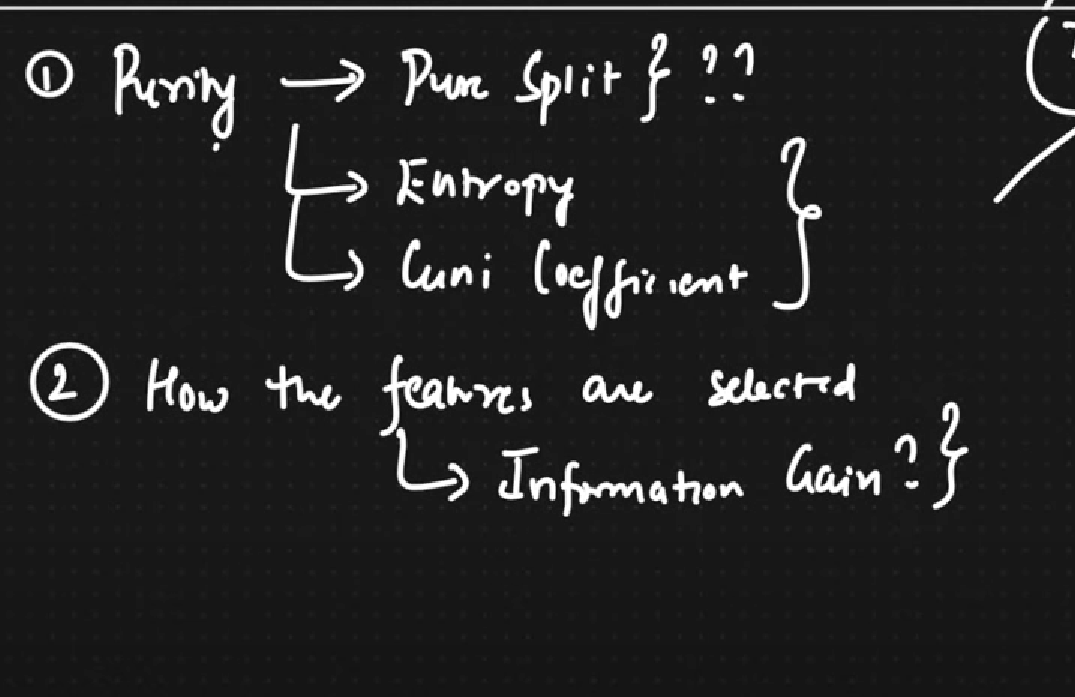 ① Purity → Pure Split } ??
↳ Entropy
↳ Gini Coefficient }
② How the features are selected
↳ Information Gain? }